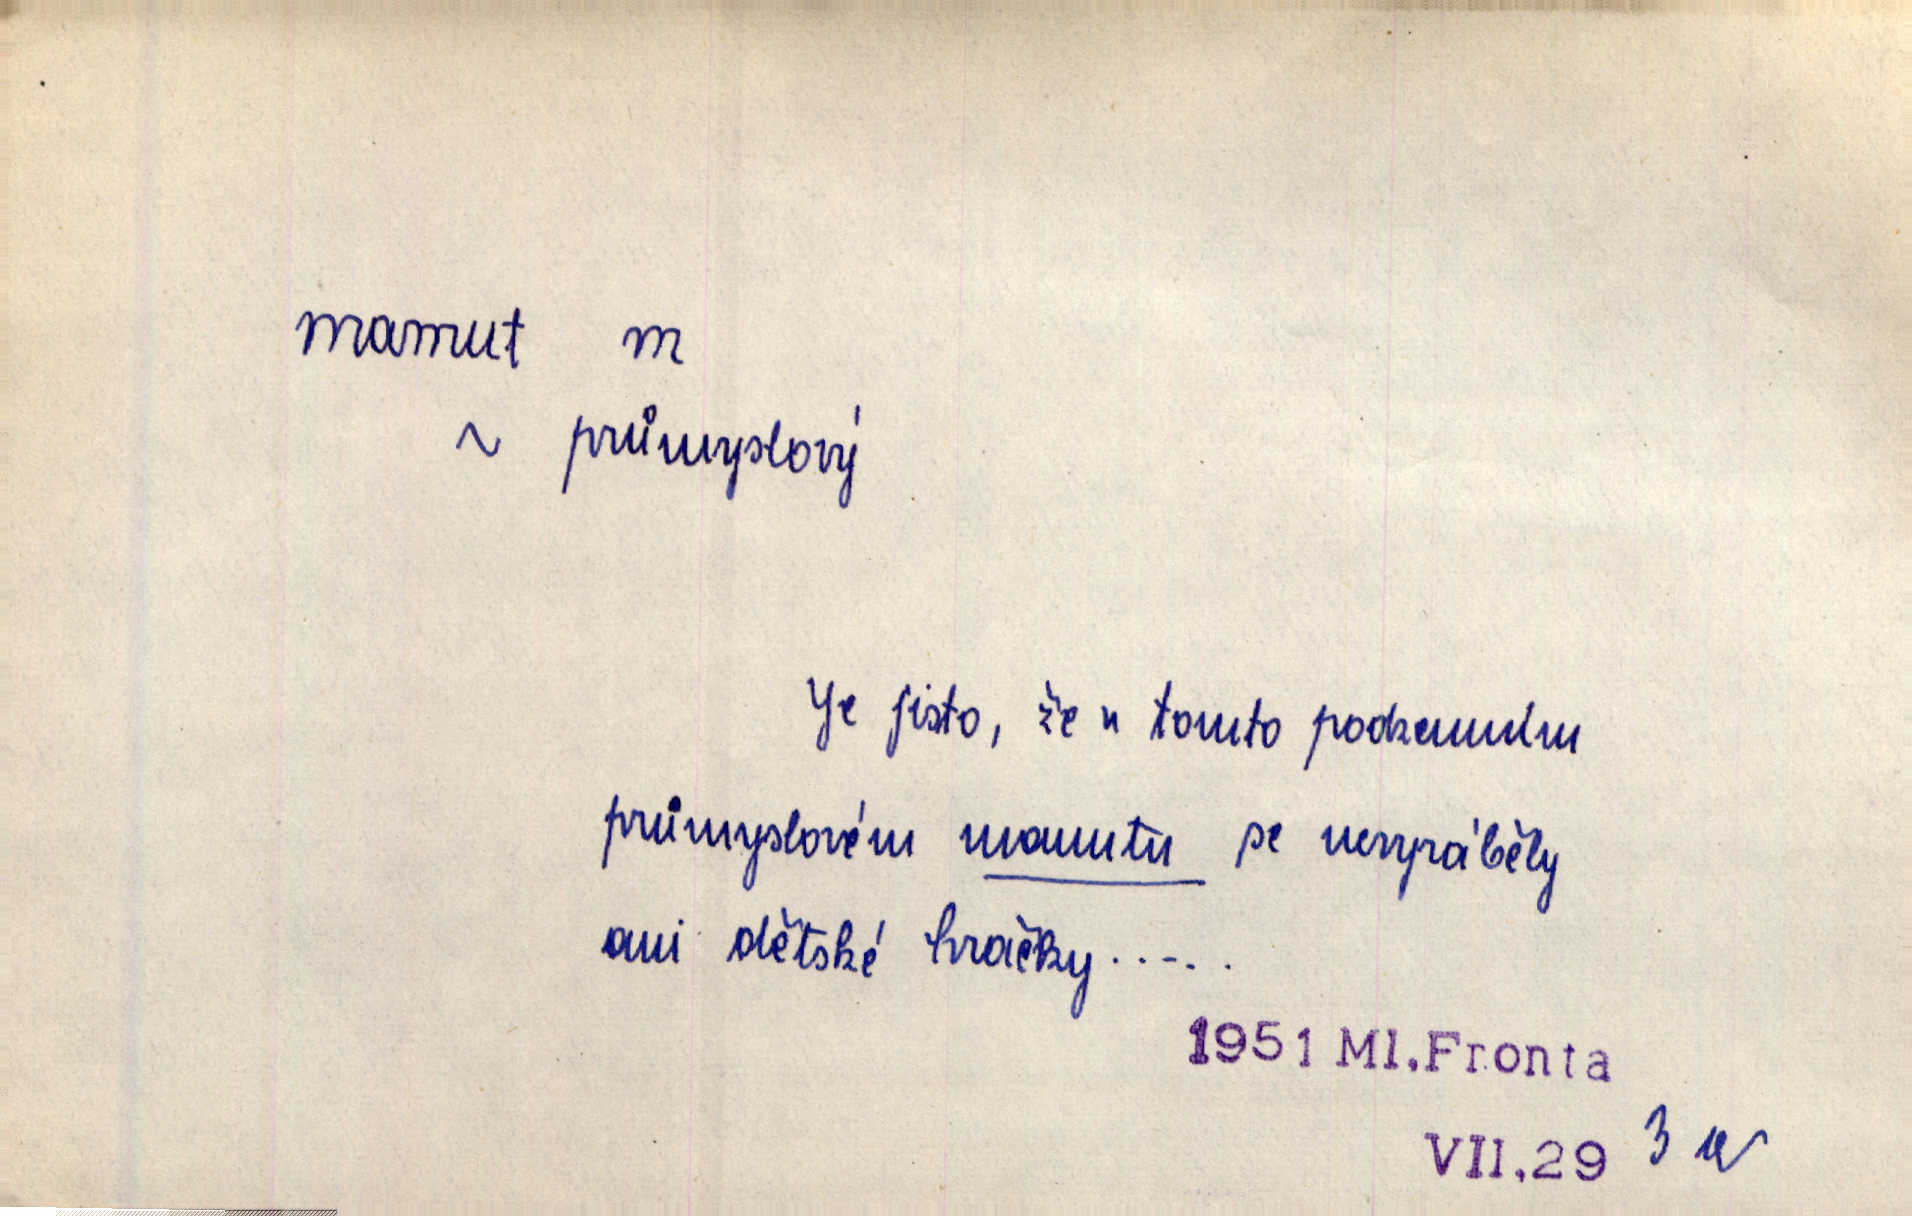 mamut m
~ průmyslový
Je jisto, že v tomto podzemním
průmyslovém mamutu se nevyráběly
ani dětské hračky.....
1951 Ml.Fronta
VII.29 3